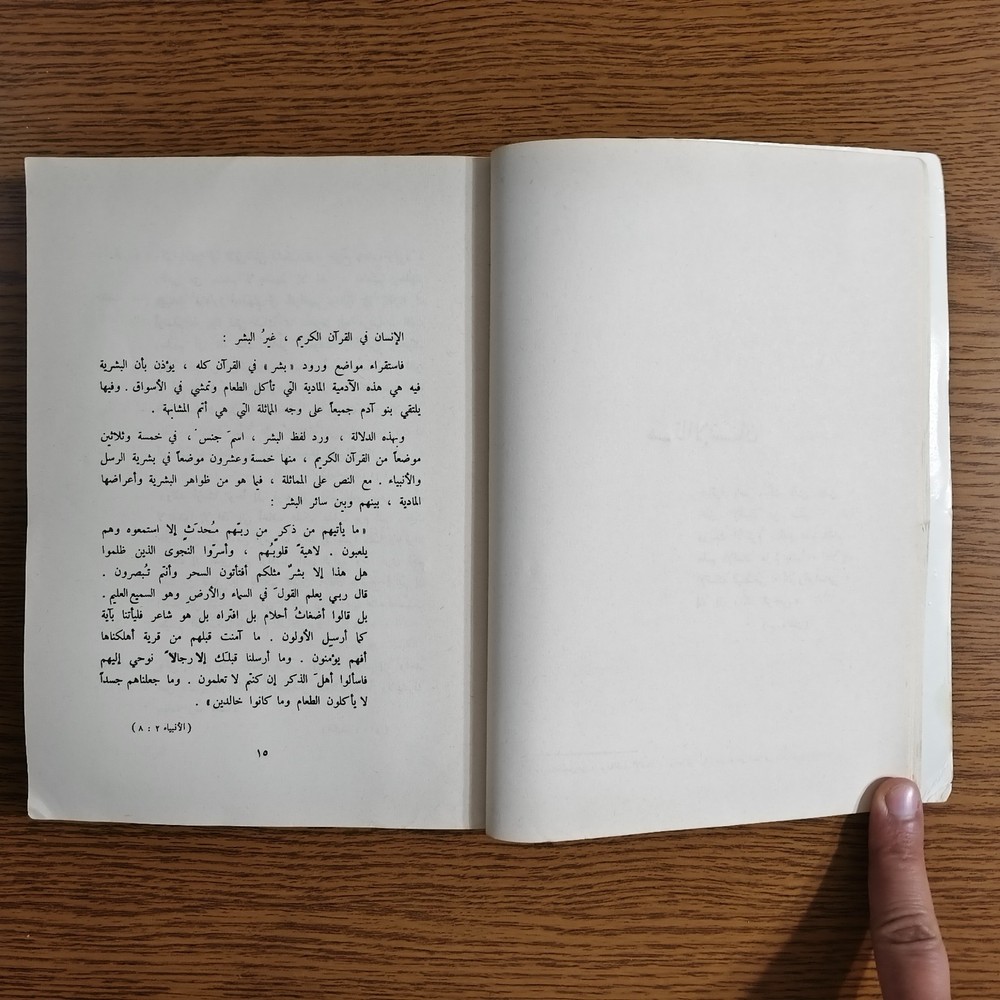 الإنسان في القرآن الكريم ، غيرُ البشر :
فاستقراء مواضع ورود « بشر » في القرآن كله ، يؤذن بأن البشرية
فيه هي هذه الآدمية المادية التي تأكل الطعام وتمشي في الأسواق . وفيها
يلتقي بنو آدم جميعاً على وجه المماثلة التي هي أتم المشابهة .
وبهذه الدلالة ، ورد لفظ البشر ، اسمَ جنس ، في خمسة وثلاثين
موضعاً من القرآن الكريم ، منها خمسة وعشرون موضعاً في بشرية الرسل
والأنبياء . مع النص على المماثلة ، فيما هو من ظواهر البشرية وأعراضها
المادية ، بينهم وبين سائر البشر :
« ما يأتيهم من ذكرٍ من ربّهم مُحدَثٍ إلا استمعوه وهم
يلعبون . لاهيةً قلوبُهم ، وأسرّوا النجوى الذين ظلموا
هل هذا إلا بشرٌ مثلكم أفتأتون السحر وأنتم تُبصرون .
قال ربي يعلم القولَ في السماء والأرضِ وهو السميع العليم .
بل قالوا أضغاثُ أحلام بل افتراه بل هو شاعر فليأتنا بآية
كما أرسِل الأولون . ما آمنت قبلهم من قرية أهلكناها
أفهم يؤمنون . وما أرسلنا قبلك إلا رجالاً نوحي إليهم
فاسألوا أهلَ الذكر إن كنتم لا تعلمون . وما جعلناهم جسداً
لا يأكلون الطعام وما كانوا خالدين » .
(الأنبياء ٢ : ٨ )
١٥